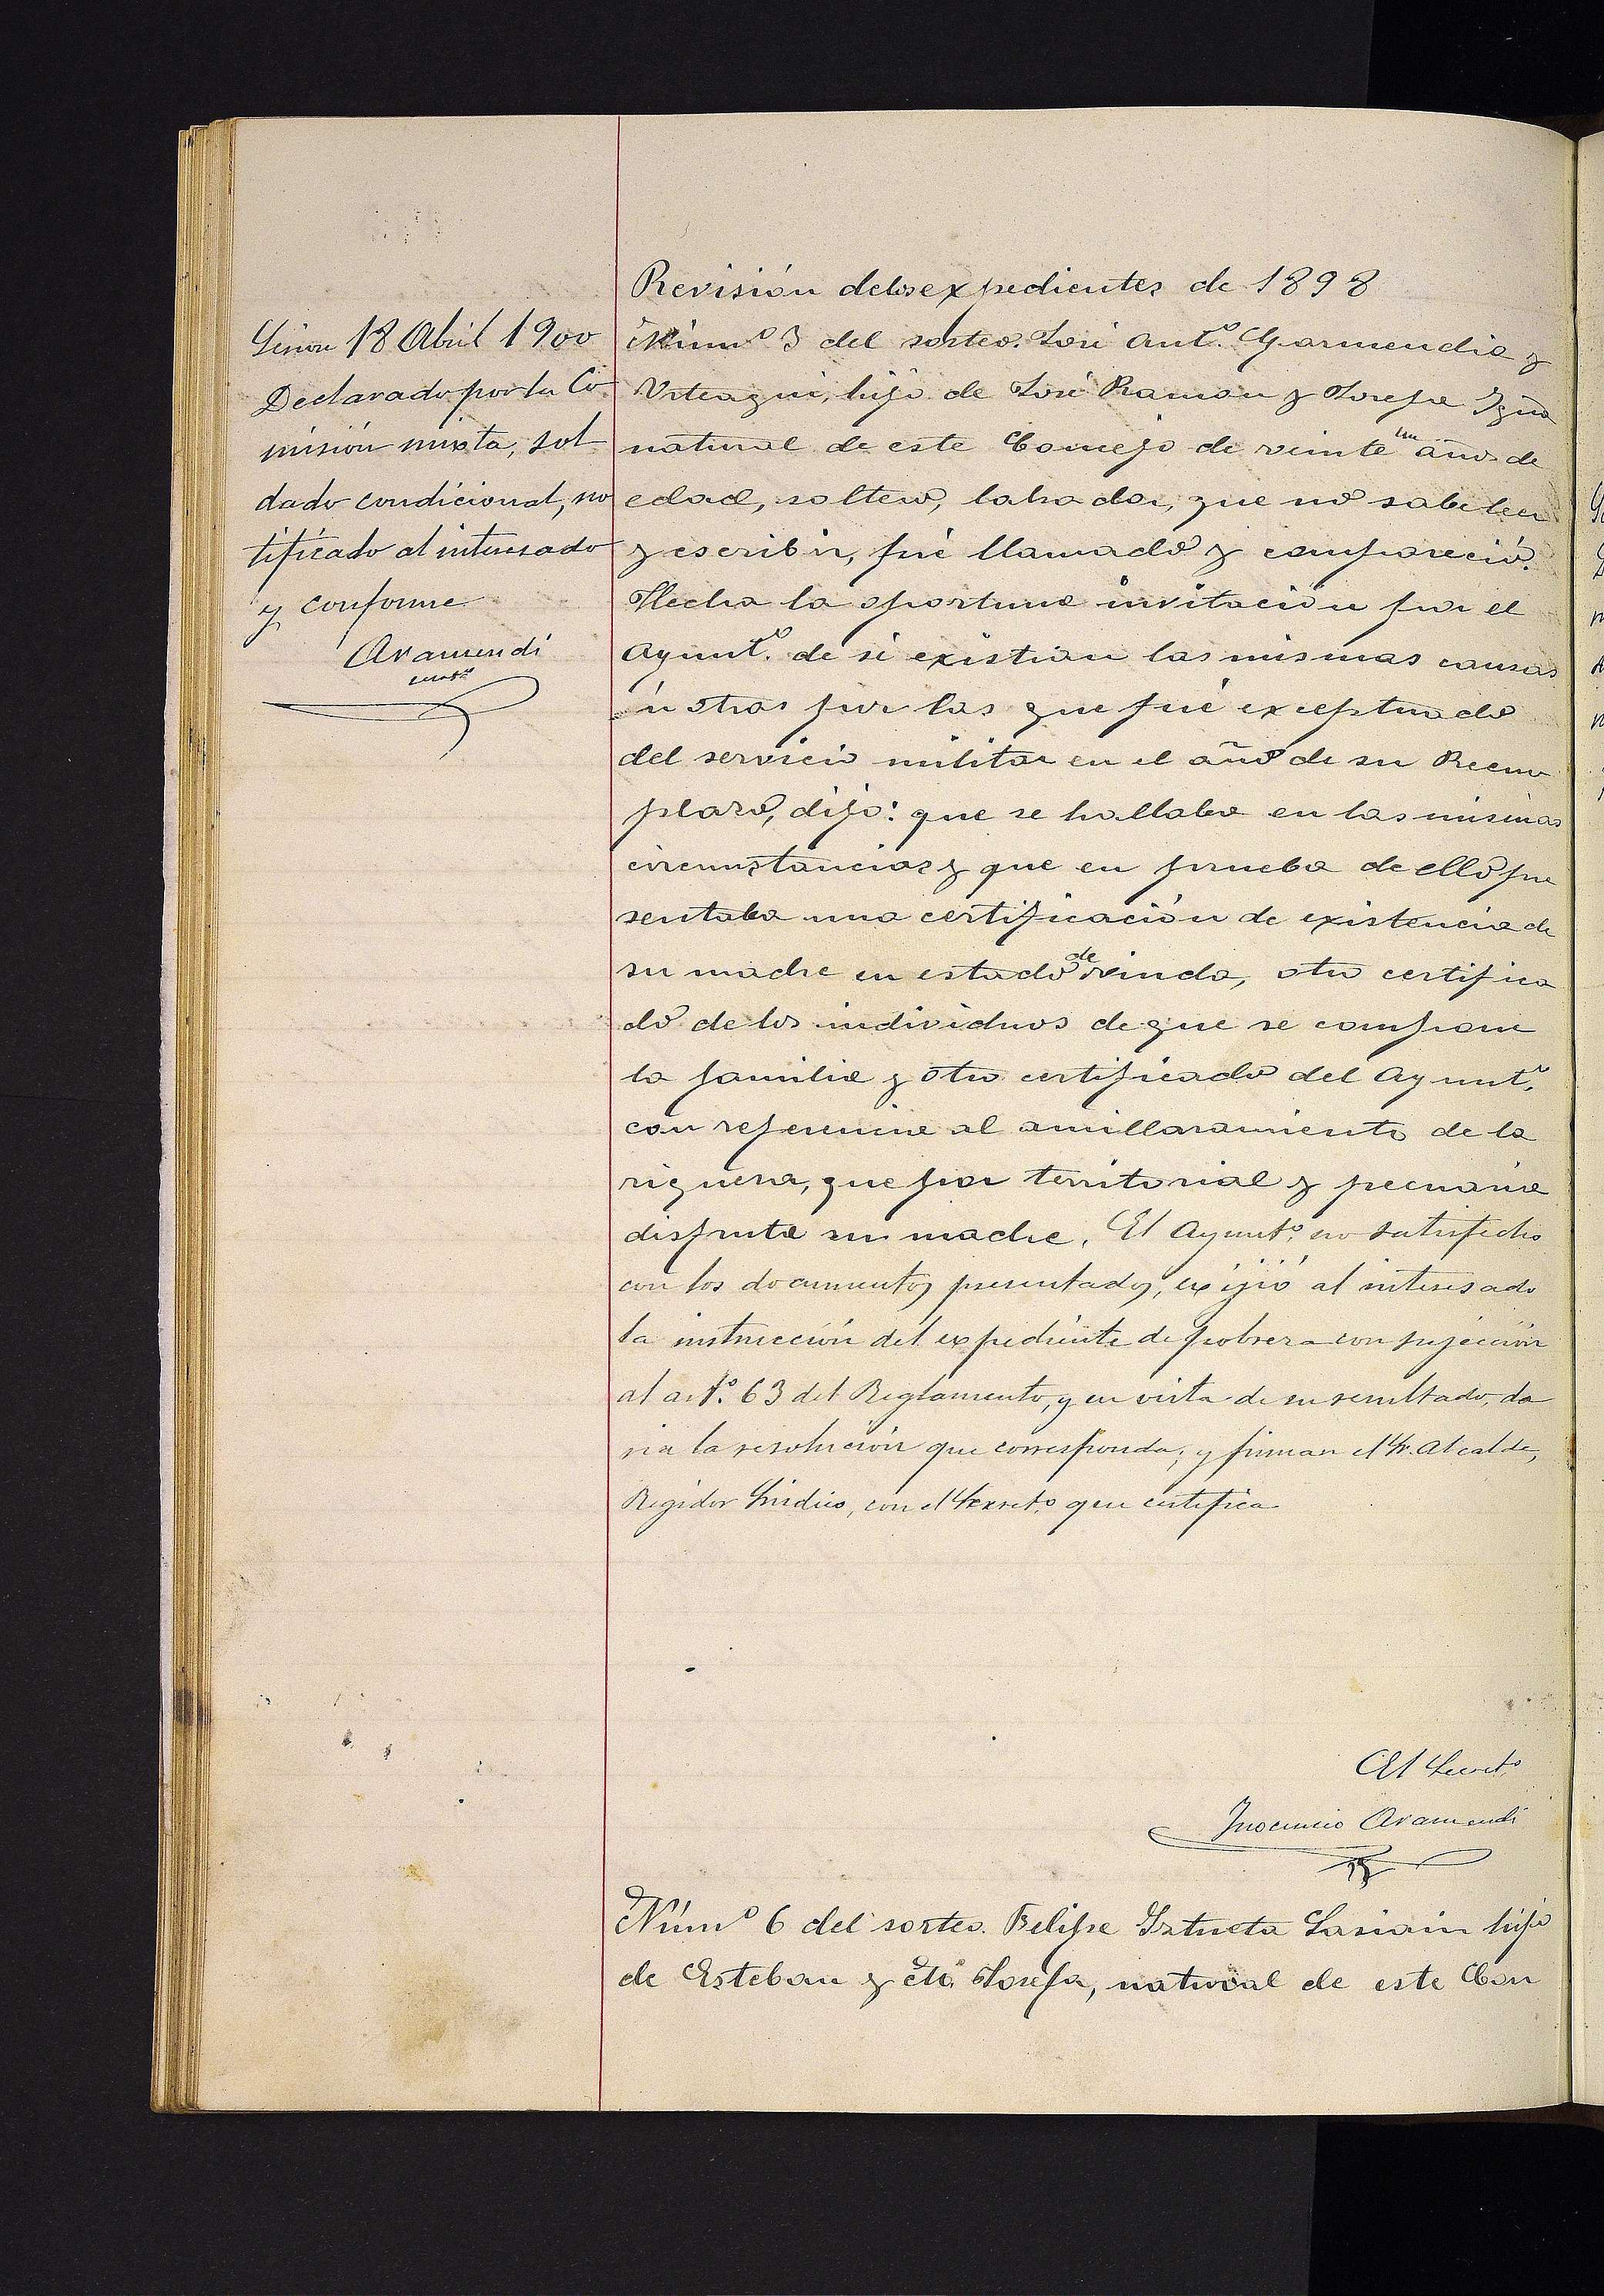 Revisión delos expedientes de 1898
Sesion 18 Abril 1900
Declarado por la Co
misión mixta, sol
dado condicional, no
tificado al interesado
y conforme
Aramendi
Núm.º 3 del sorteo. José Ant.º Garmendia y
hijo de José Ramon y Josefa Igna
natural de este Concejo de veinte un años de
edad, soltero, labrador, que no sabe leer
y escribir, fué llamado y compareció.
Hecha la oportuna invitación por el
Ayunt.º de si existian las mismas causas
ú otras por las que fué exceptuado
del servicio militar en el año de su Reem
plazo, dijo: que se hallaba en las mismas
circunstancias y que en prueba de ello pre
sentaba una certificación de existencia de
su madre en estado de viuda, otro certifica
do de los individuos de que se compone
la familia y otro certificado del Ayunt.º
con referencia al amillaramiento de la
riqueza, que por territorial y pecuaria
disfruta su madre. El Ayunt.º no satisfecho
con los documentos presentados, exijió al interesado
la instrucción del expediente de pobreza con sujeción
al art.º 63 del Reglamento, y en vista de su resultado, da
ria la resolución que corresponda; y firman el Sr. Alcalde,
Regidor Síndico, con el Secret.º que certifica
El Secret.º
Inocencio Aramendi
Núm.º 6 del sorteo. Felipe Iztueta Lasiain hijo
de Esteban y Josefa, natural de este Con